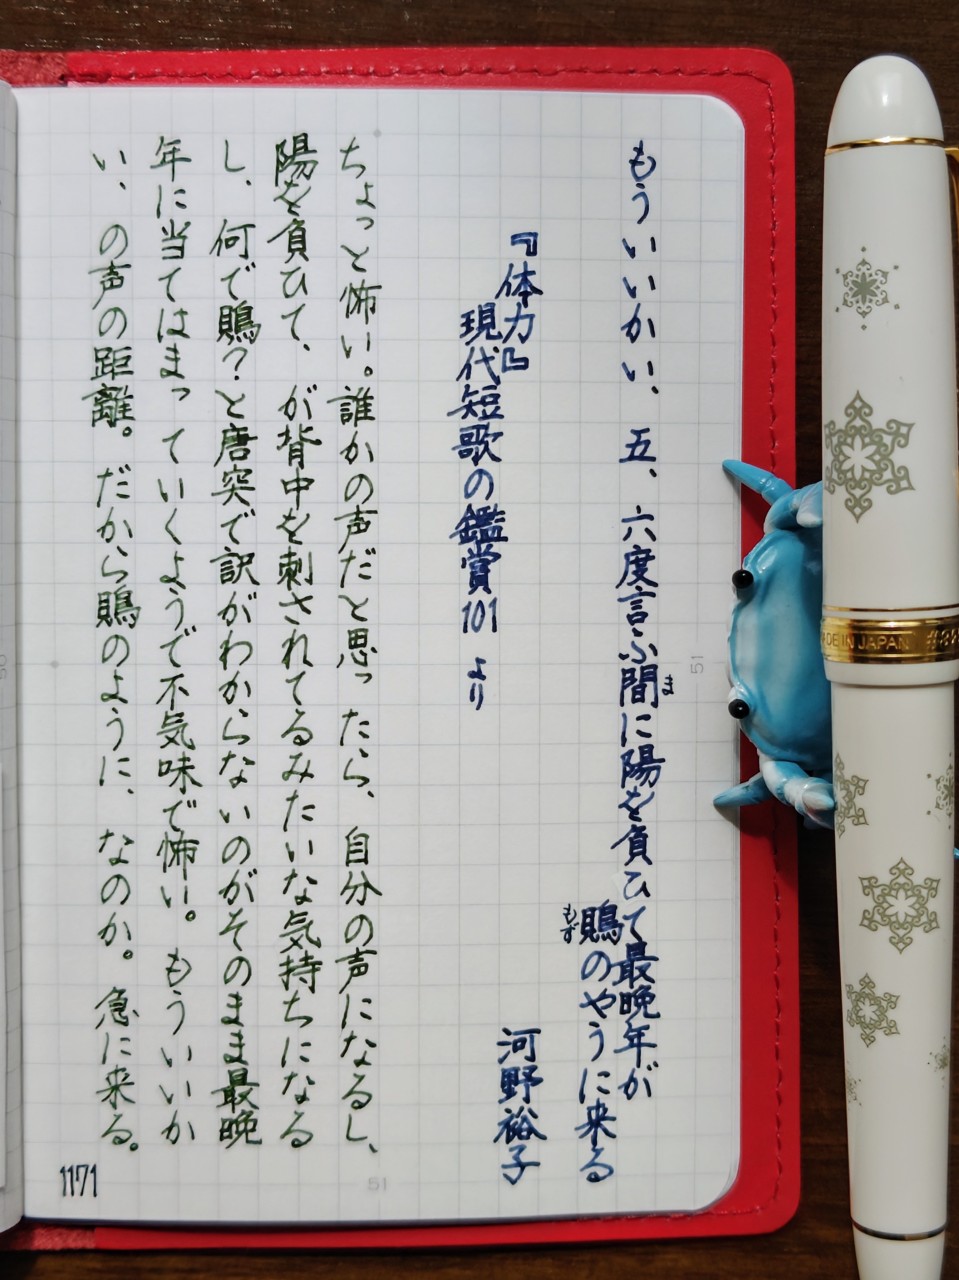 もういいかい、五、六度言ふ間に陽を負ひて最晩年が
ま
鵙のやうに来る
もず
河野裕子
『体力』
現代短歌の鑑賞101 より
ちょっと怖い。誰かの声だと思ったら、自分の声になるし、
陽を負ひて、が背中を刺されてるみたいな気持ちになる
し、何で鵙?と唐突で訳がわからないのがそのまま最晩
年に当てはまっていくようで不気味で怖い。もういいか
い、の声の距離。だから鵙のように、なのか。急に来る。
1171
51
51
DE IN JAPAN